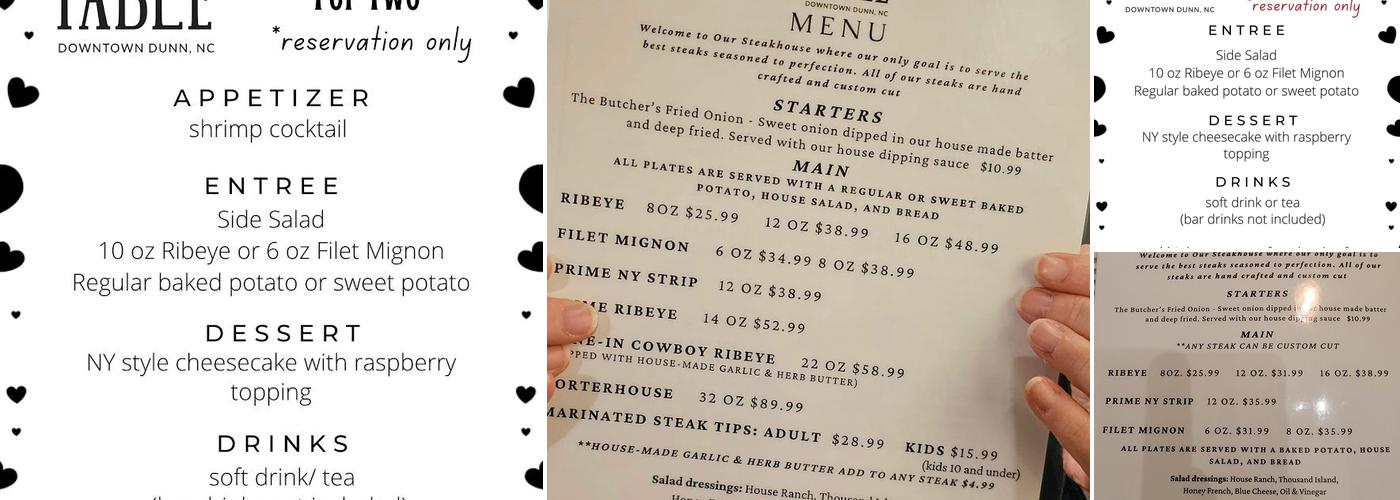 TABLE
FOR TWO
DOWNTOWN DUNN, NC
*reservation only
APPETIZER
shrimp cocktail
ENTREE
Side Salad
10 oz Ribeye or 6 oz Filet Mignon
Regular baked potato or sweet potato
DESSERT
NY style cheesecake with raspberry
topping
DRINKS
soft drink/ tea
DOWNTOWN DUNN, NC
MENU
Welcome to Our Steakhouse where our only goal is to serve the
best steaks seasoned to perfection. All of our steaks are hand
crafted and custom cut
STARTERS
The Butcher's Fried Onion - Sweet onion dipped in our house made batter
and deep fried. Served with our house dipping sauce $10.99
MAIN
ALL PLATES ARE SERVED WITH A REGULAR OR SWEET BAKED
POTATO, HOUSE SALAD, AND BREAD
RIBEYE 8OZ $25.99 12 OZ $38.99 16 OZ $48.99
FILET MIGNON 6 OZ $34.99 8 OZ $38.99
PRIME NY STRIP 12 OZ $38.99
ME RIBEYE 14 OZ $52.99
NE-IN COWBOY RIBEYE 22 OZ $58.99
PPED WITH HOUSE-MADE GARLIC & HERB BUTTER)
ORTERHOUSE 32 OZ $89.99
MARINATED STEAK TIPS: ADULT $28.99 KIDS $15.99
(kids 10 and under)
**HOUSE-MADE GARLIC & HERB BUTTER ADD TO ANY STEAK $4.99
Salad dressings: House Ranch, Thousand
DOWNTOWN DUNN, NC
*reservation only
ENTREE
Side Salad
10 oz Ribeye or 6 oz Filet Mignon
Regular baked potato or sweet potato
DESSERT
NY style cheesecake with raspberry
topping
DRINKS
soft drink or tea
(bar drinks not included)
Welcome to Our Steakhouse where our only goal is to
serve the best steaks seasoned to perfection. All of our
steaks are hand crafted and custom cut
STARTERS
The Butcher's Fried Onion - Sweet onion dipped in our house made batter
and deep fried. Served with our house dipping sauce $10.99
MAIN
**ANY STEAK CAN BE CUSTOM CUT
RIBEYE 8OZ. $25.99 12 OZ. $31.99 16 OZ. $38.99
PRIME NY STRIP 12 OZ. $35.99
FILET MIGNON 6 OZ. $31.99 8 OZ. $35.99
ALL PLATES ARE SERVED WITH A BAKED POTATO, HOUSE
SALAD, AND BREAD
Salad dressings: House Ranch, Thousand Island,
Honey French, Blue Cheese, Oil & Vinegar